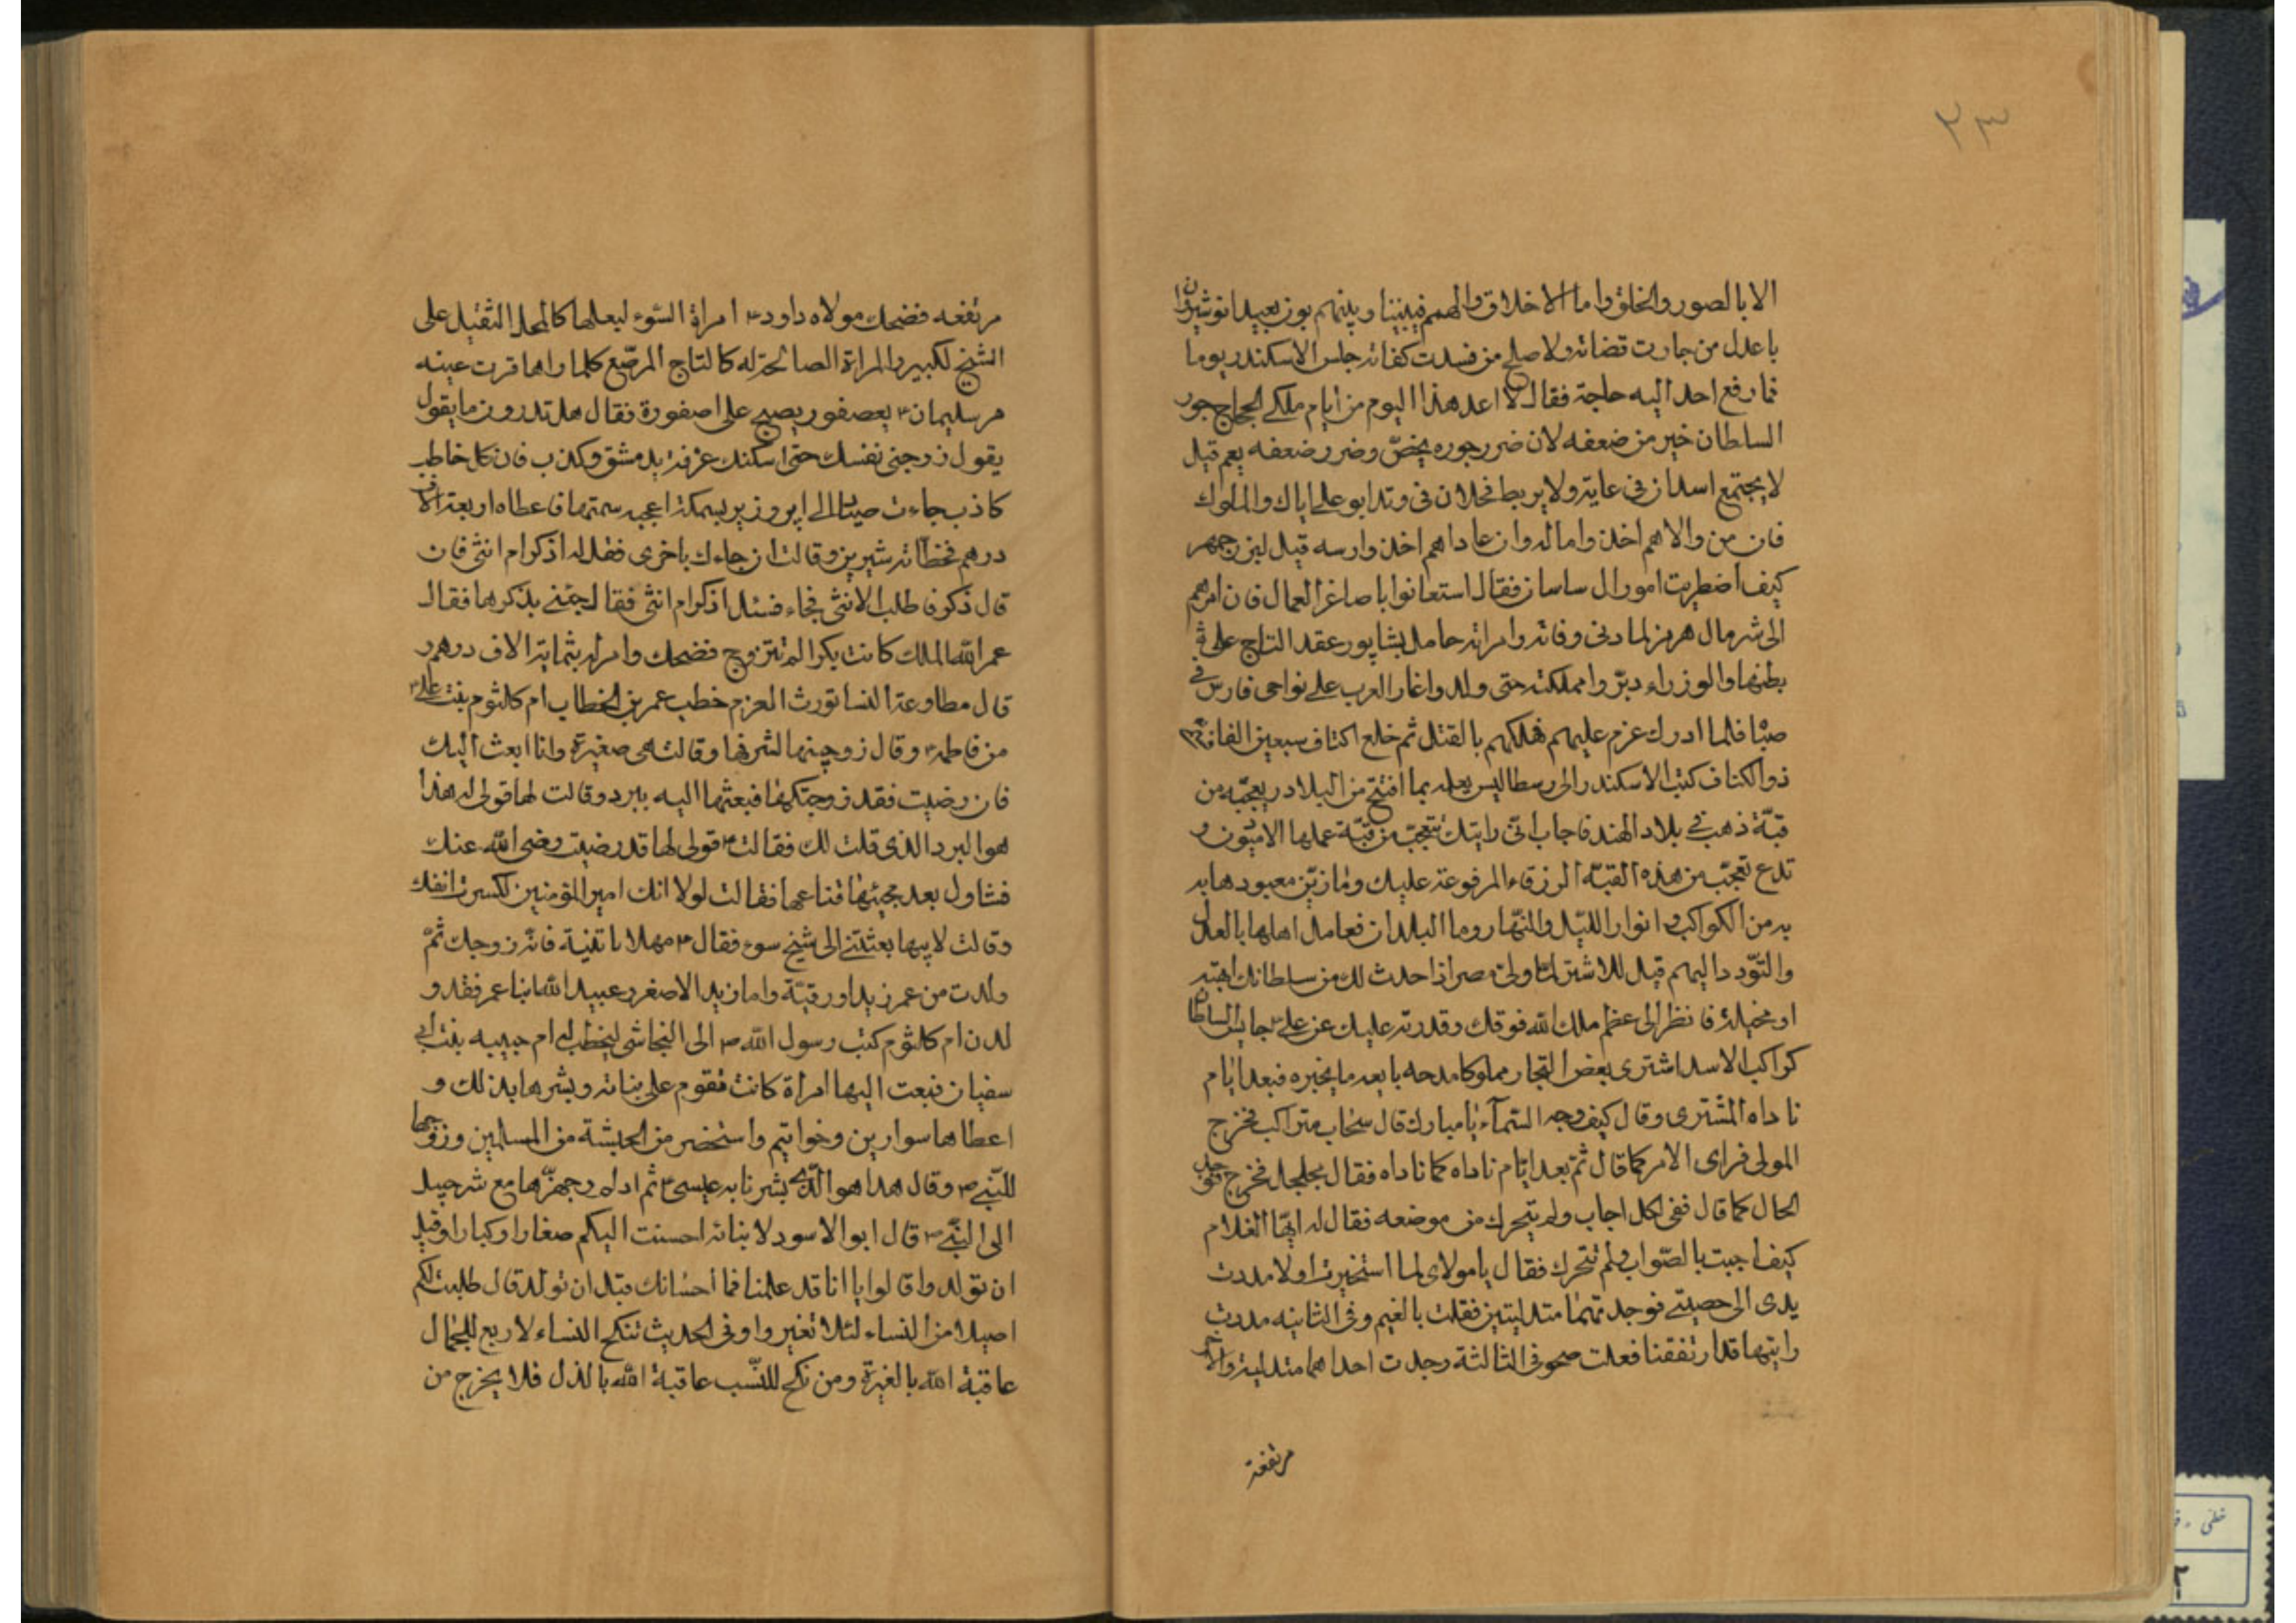 ٢٣
الا بالصور والخلق واما الاخلاق والهمم فبيننا وبينهم بون بعيد انوشيروان
ما عدل من جارت قضاته ولا صلح من فسدت كفاته جلس الاسكندر يوما
فما رفع احد اليه حاجة فقال لا اعد هذا اليوم من ايام ملكي الحجاج جور
السلطان خير من ضعفه لان ضرر جوره يخصّ وضرر ضعفه يعم قيل
لا يجتمع اسدان في غابة ولا يربط فحلان في وتد ابو علي اياك والملوك
فان من والاهم اخذوا ماله وان عاداهم اخذوا رسه قيل لبزرجمهر
كيف اضطربت امور ال ساسان فقال استعانوا باصاغر العمال فان امرهم
الى شر مال هرمز لما دنى وفاته وامراته حامل بشاپور عقد التاج على
بطنها والوزراء دبّروا مملكته حتى ولد واغار العرب على نواحى فارس في
صباه فلما ادرك عزم عليهم فهلكهم بالقتل ثم خلع اكتاف سبعين الفا
ذو الكتاف كتب الاسكندر الى رسطاليس يعلمه بما افتتح من البلاد ويعجّبه من
قبّة ذهب في بلاد الهند فاجاب انّى رايتك تتعجّب من قبّة عملها الادميّون و
تدع تعجّب من هذه القبّة الزرقاء المرفوعة عليك وما زيّن معبودها به
به من الكواكب وانوار الليّل والنّهار وما البلدان فعامل اهلها بالعدل
والتوّدد اليهم قيل للاشتر لمّا ولىّ مصر اذا حدث لك من سلطانك ابهة
او مخيلة فانظر الى عظم ملك الله فوقك وقدرته عليك عن علي ۴ جايس السلطان
كراكب الاسد اشترى بعض التجار مملوكا مدحه بايعه ما يخبره فبعد ايّام
ناداه المشترى وقال كيف وجه السّمآء يا مبارك قال سحاب متراكب فخرج
المولى فراى الامر كما قال ثمّ بعد ايّام ناداه كما ناداه فقال مجلجل فخرج فوجد
الحال كما قال ففى كل اجاب ولم يتحرك من موضعه فقال له ايّها الغلام
كيف اجبت بالصّواب ولم تتحرك فقال يا مولاى لما استخبرت اولا مددت
يدى الى خصيتى فوجدتهما متدليتين فقلت بالغيم وفى الثانيه مددت
رايتها قد ارتفقنا فعلت صحو فى الثالثة وجدت احداهما متدلية والاخر
مرتفعة
مرتفعه فضحك مولاه داود ۴ امراة السّوء لبعلها كالحمل الثقيل على
الشيخ لكبير والمراة الصالحة له كالتاج المرصّع كلما راها قرت عينه
مر سليمان ۴ بعصفور يصيح على اصفورة فقال هل تدرون ما يقول
يقول زوجنى نفسك حتى اسكنك غرفة بدمشق وكذب فان كل خاطب
كاذب جاءت صيّاد الى اپرويز بسمكة اعجبه سمتها فاعطاه اربعة الاف
درهم فخطاته شيرين وقالت ان جاءك باخرى فقل له اذكر ام انثى فان
قال ذكر فاطلب الانثى فجاء فسئل اذكر ام انثى فقال جئنى بذكرها فقال
عمر الله الملك كانت بكرا لم تتزوج فضحك وامر له بثمانية الاف درهم و
قال مطاوعة النسا تورث المغرم خطب عمر بن الخطاب ام كلثوم بنت علي ۴
من فاطمه ۴ وقال زوجينها لشرفها وقالت هى صغيرة وانا ابعث اليك
فان رضيت فقد زوجتكها فبعثها اليه ببرد وقالت لها قولى له هذا
هو البرد الذى قلت لك فقالت ۴ قولى لها قد رضيت رضى الله عنك
فشاول بعد مجيئها قناعها فقالت لولا انك امير المؤمنين لكسرت انفك
وقالت لابيها بعثتنى الى شيخ سوء فقال ۴ مهلا يا بنية فانّه زوجك ثمّ
ولدت من عمر زيدا ورقيّة واما زيد الاصغر وعبيد الله ابنا عمر فقد و
لدن ام كلثوم كتب رسول الله ص الى النجاشى ليخطب له ام حبيبه بنت ابى
سفيان فبعث اليها امراة كانت تقوم على بناته وبشرها بذلك و
اعطاها سوارين وخواتيم واستحضر من الحبشة من المسلمين وزوّجها
للنّبى ص وقال هذا هو الذى بشرنا به عيسى ۴ ثم اداه وجهزّها مع شرحبيل
الى النبّى ص قال ابو الاسود لابنائه احسنت اليكم صغارا وكبارا وقبل
ان تولدوا قالوا يا انا قد علمنا فما احسانك قبل ان تولد قال طلبت لكم
اصيلا من النساء لئلا تغيروا وفى الحديث تنكح النساء لاربع للجمال
عاقبة الله بالغيرة ومن نكح للنّسب عاقبة الله بالذل فلا يخرج من